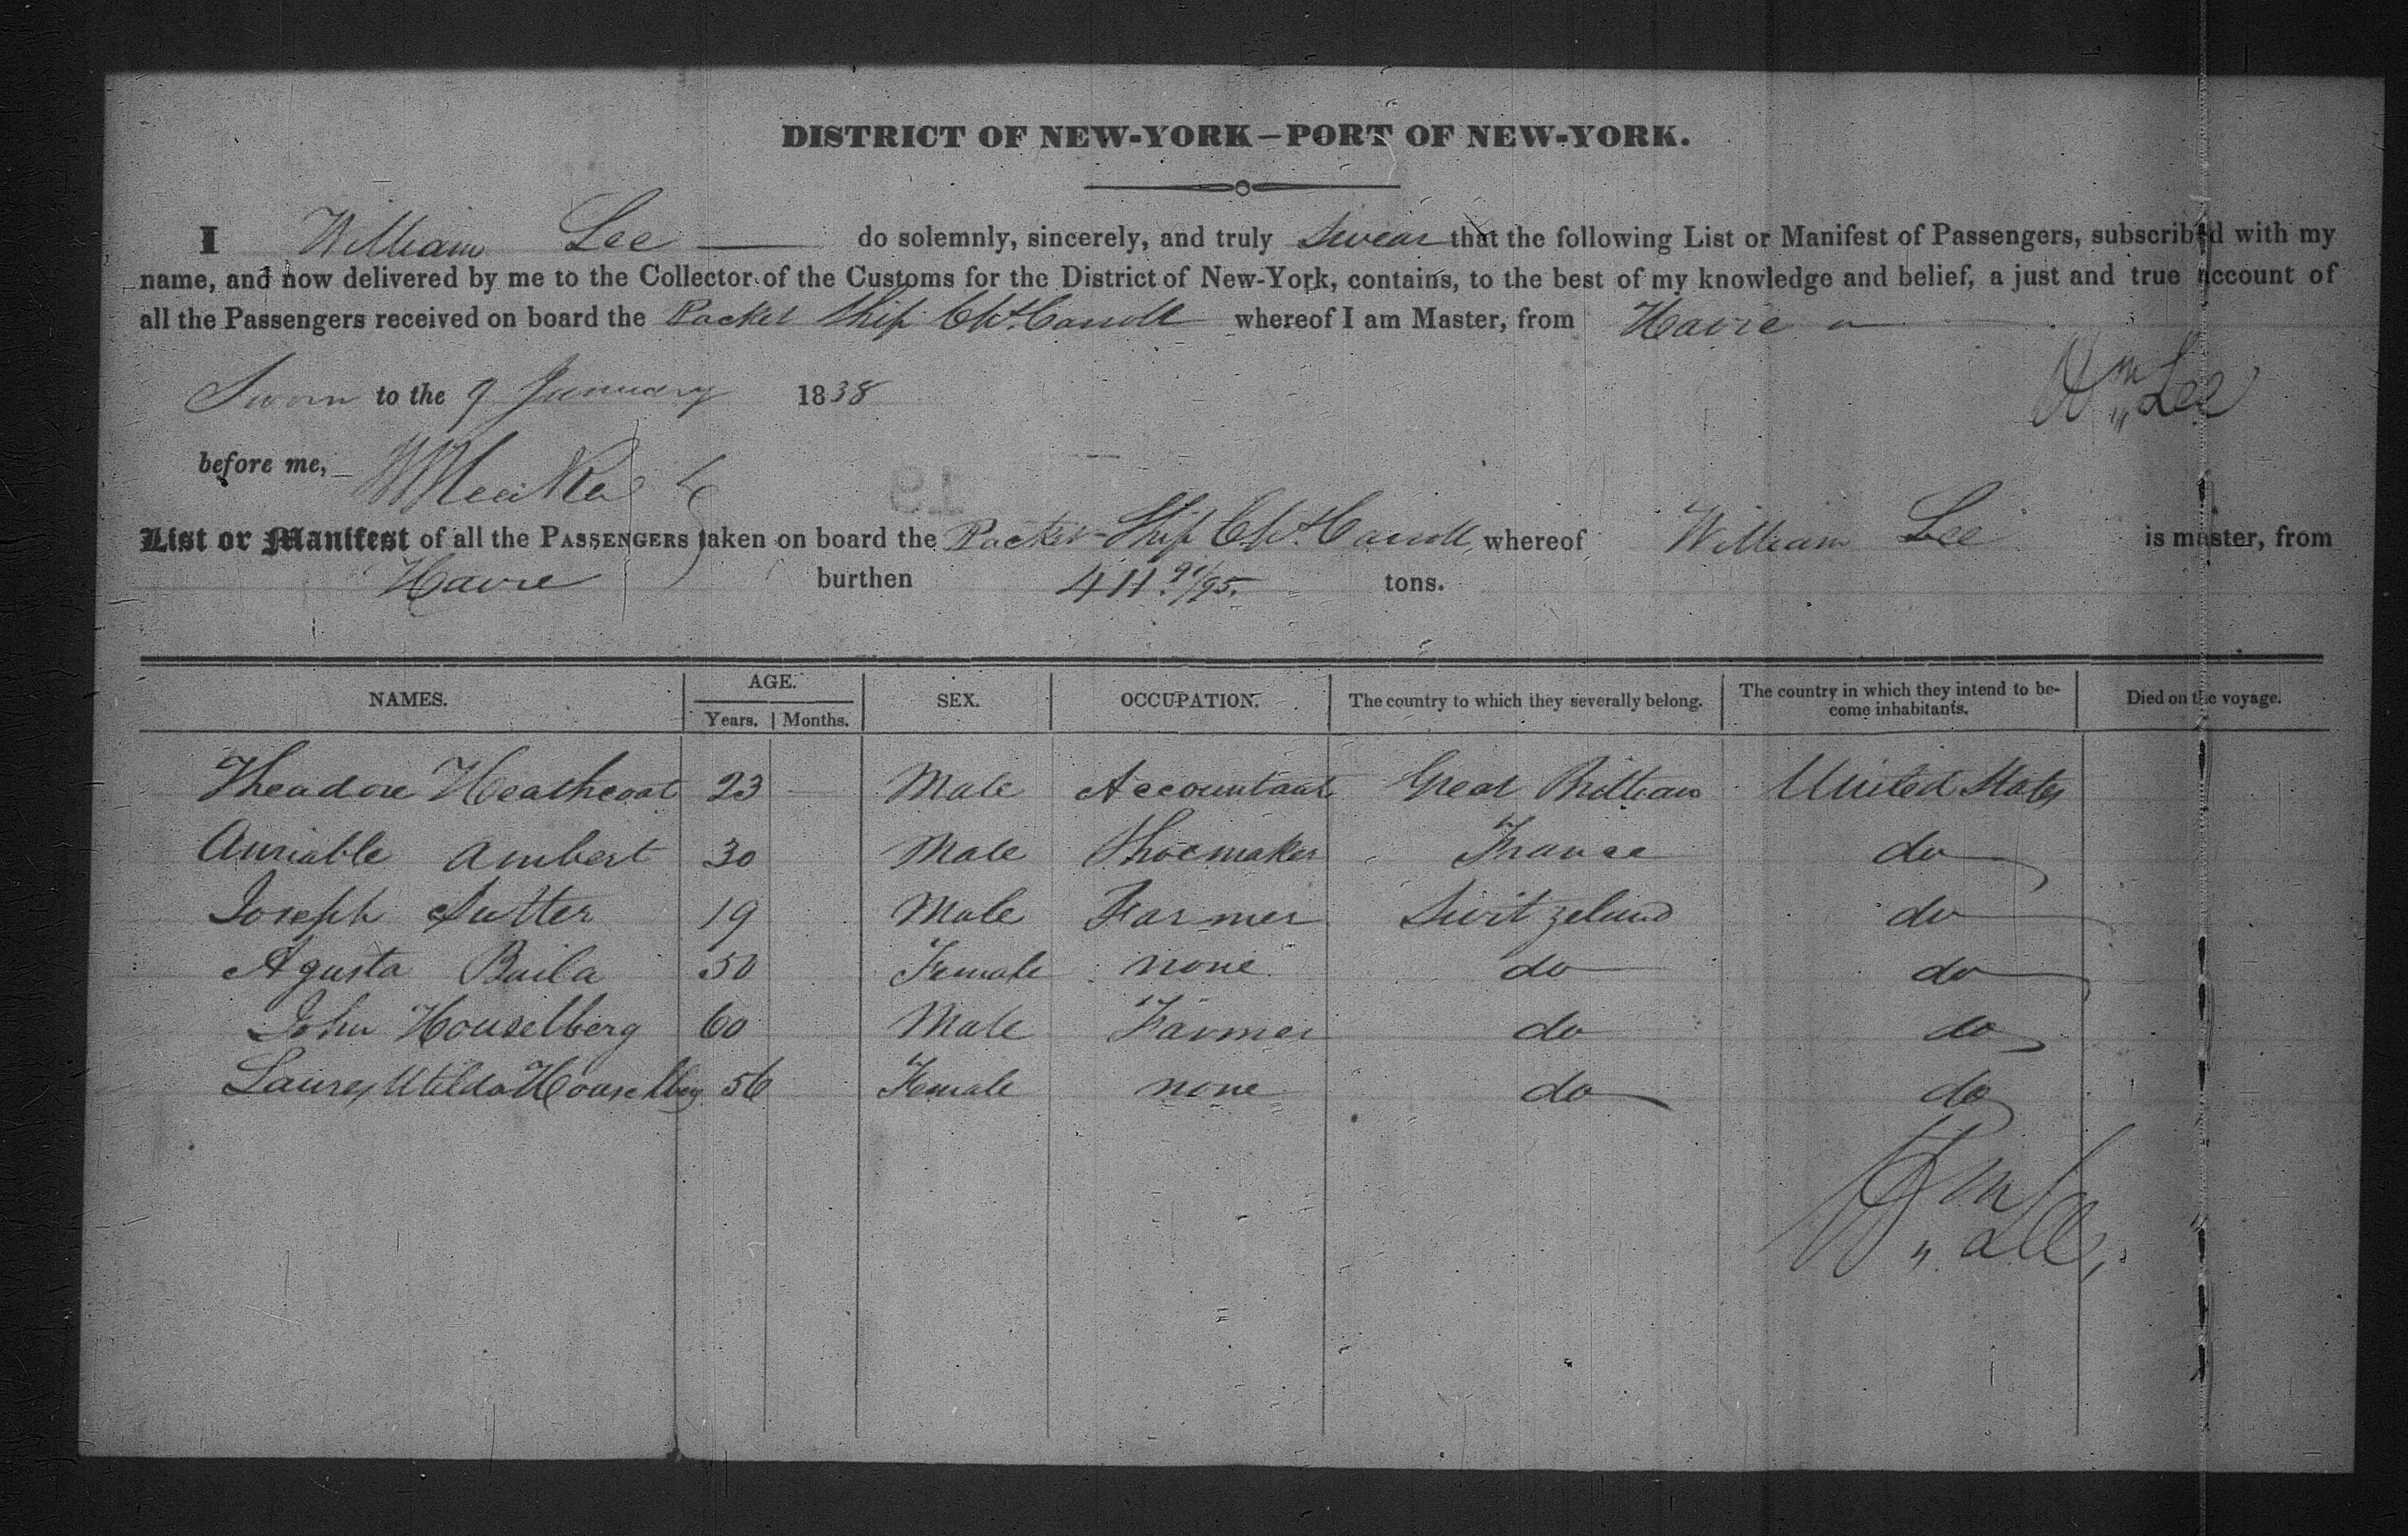 DISTRICT OF NEW-YORK—PORT OF NEW-YORK.
I William Lee — do solemnly, sincerely, and truly Swear that the following List or Manifest of Passengers, subscribed with my
name, and now delivered by me to the Collector of the Customs for the District of New-York, contains, to the best of my knowledge and belief, a just and true account of
all the Passengers received on board the Packet Ship Chs. Carroll whereof I am Master, from Havre
Sworn to the 9 January 1838
Wm Lee
before me,
List or Manifest of all the PASSENGERS taken on board the Packet Ship Chs. Carroll, whereof William Lee is master, from
Havre burthen 411. 91/95. tons.
NAMES. AGE. Years. Months. SEX. OCCUPATION. The country to which they severally belong. The country in which they intend to become inhabitants. Died on the voyage.
Theadore Heathcoat 23 Male Accountant Great Brittian United States
Amiable Ambert 30 Male Shoemaker France do
Joseph Sutter 19 Male Farmer Switzelund do
Agusta Baila 50 Female none do do
John Houselberg 60 Male Farmer do do
Houselberg 56 Female none do do
Wm Lee